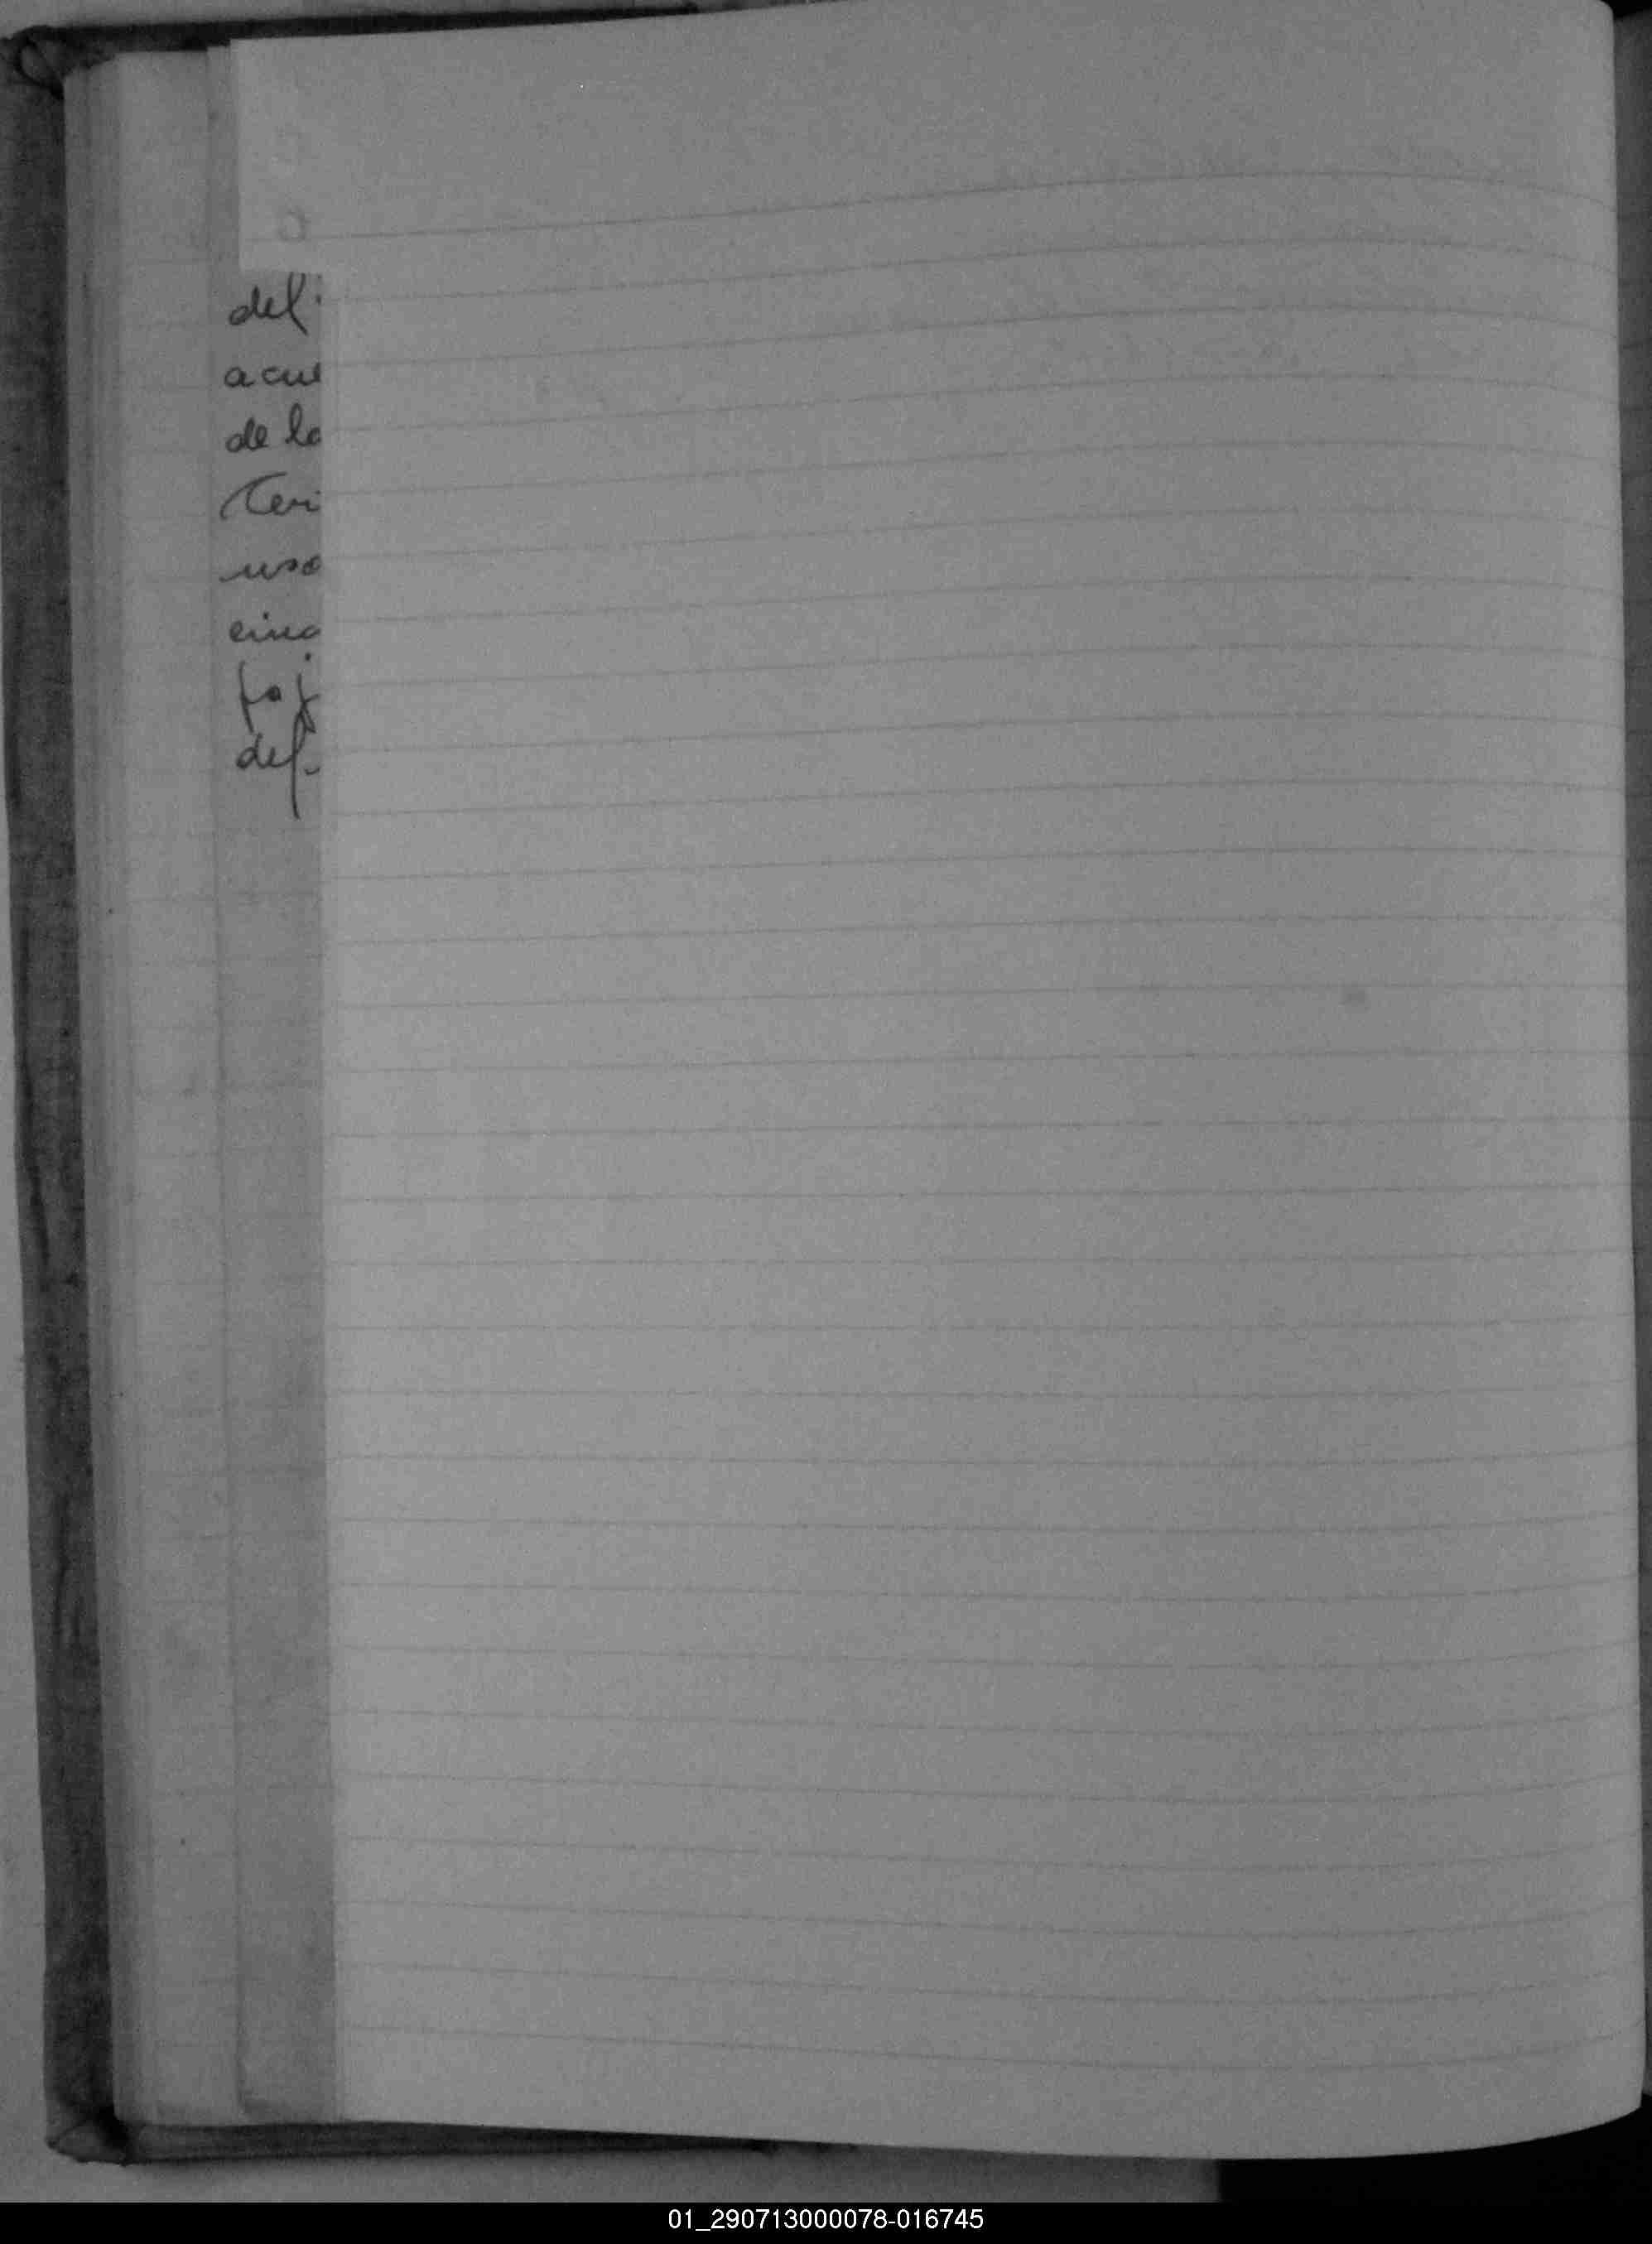 del
acu
de la
Ceri
uso
cinc
foj
def.
01_290713000078-016745